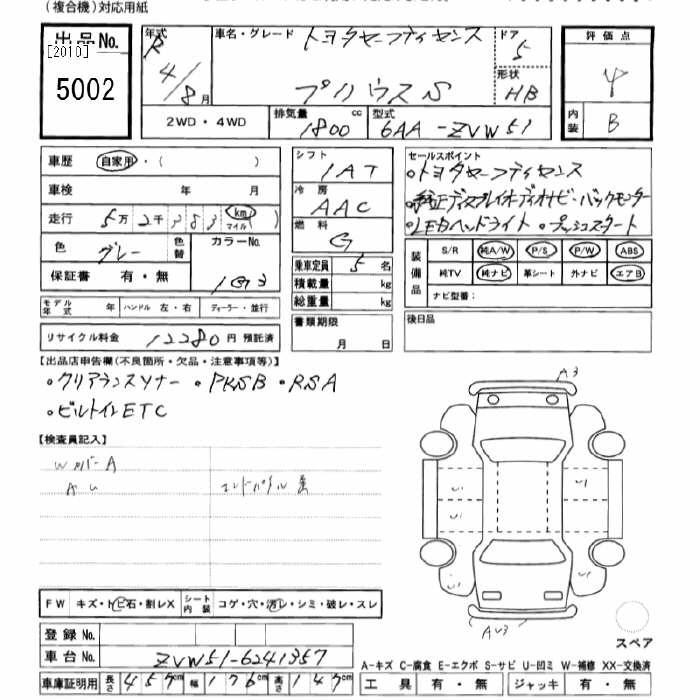 (複合機)対応用紙
出品No.
[2010]
5002
年式 R 4/8月
車名・グレード トヨタセーフティセンス
プリウスS
ドア 5
形状 HB
評価点 4
内装 B
2WD・4WD
排気量 1800 cc
型式 6AA-ZVW51
車歴 自家用・( )
車検 年 月
走行 5万2千283 km マイル( )
色 グレー 色替
カラーNo. 1G3
保証書 有・無
モデル年式 年 ハンドル 左・右 ディーラー・並行
リサイクル料金 12280円 預託済
シフト 1AT
冷房 AAC
燃料 G
乗車定員 5名
積載量 kg
総重量 kg
書類期限
月 日
セールスポイント
・トヨタセーフティセンス
・純正ディスプレイオーディオナビ・バックモニター
・LEDヘッドライト・プッシュスタート
装備品
S/R 純A/W P/S P/W ABS
純TV 純ナビ 革シート 外ナビ エアB
ナビ型番:
後日品
【出品店申告欄(不良箇所・欠品・注意事項等)】
・クリアランスソナー ・PKSB ・RSA
・ビルトインETC
【検査員記入】
WカバーA
AU
エンドパネル
A3
AU3
FW キズ・トビ石・割レX
シート内装 コゲ・穴・汚レ・シミ・破レ・スレ
登録No.
車台No. ZVW51-6241357
車庫証明用 長さ 457 幅 176cm 高さ 147
スペア
A-キズ C-腐食 E-エクボ S-サビ U-凹ミ W-補修 XX-交換済
工具 有・無 ジャッキ 有・無